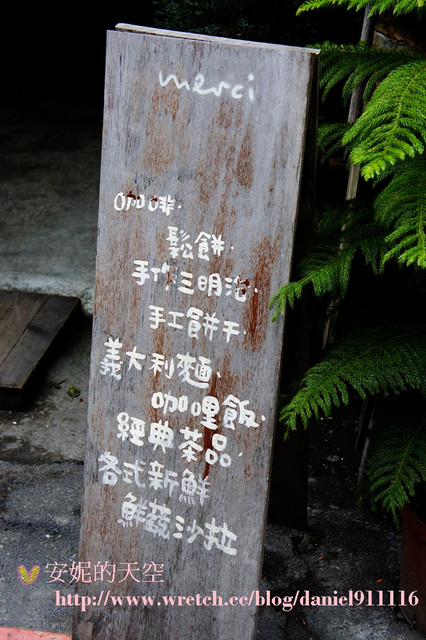 merci
咖啡.
鬆餅.
手作三明治.
手工餅干.
義大利麵.
咖哩飯.
經典茶品.
各式新鮮
鮮蔬沙拉
安妮的天空
http://www.wretch.cc/blog/daniel911116